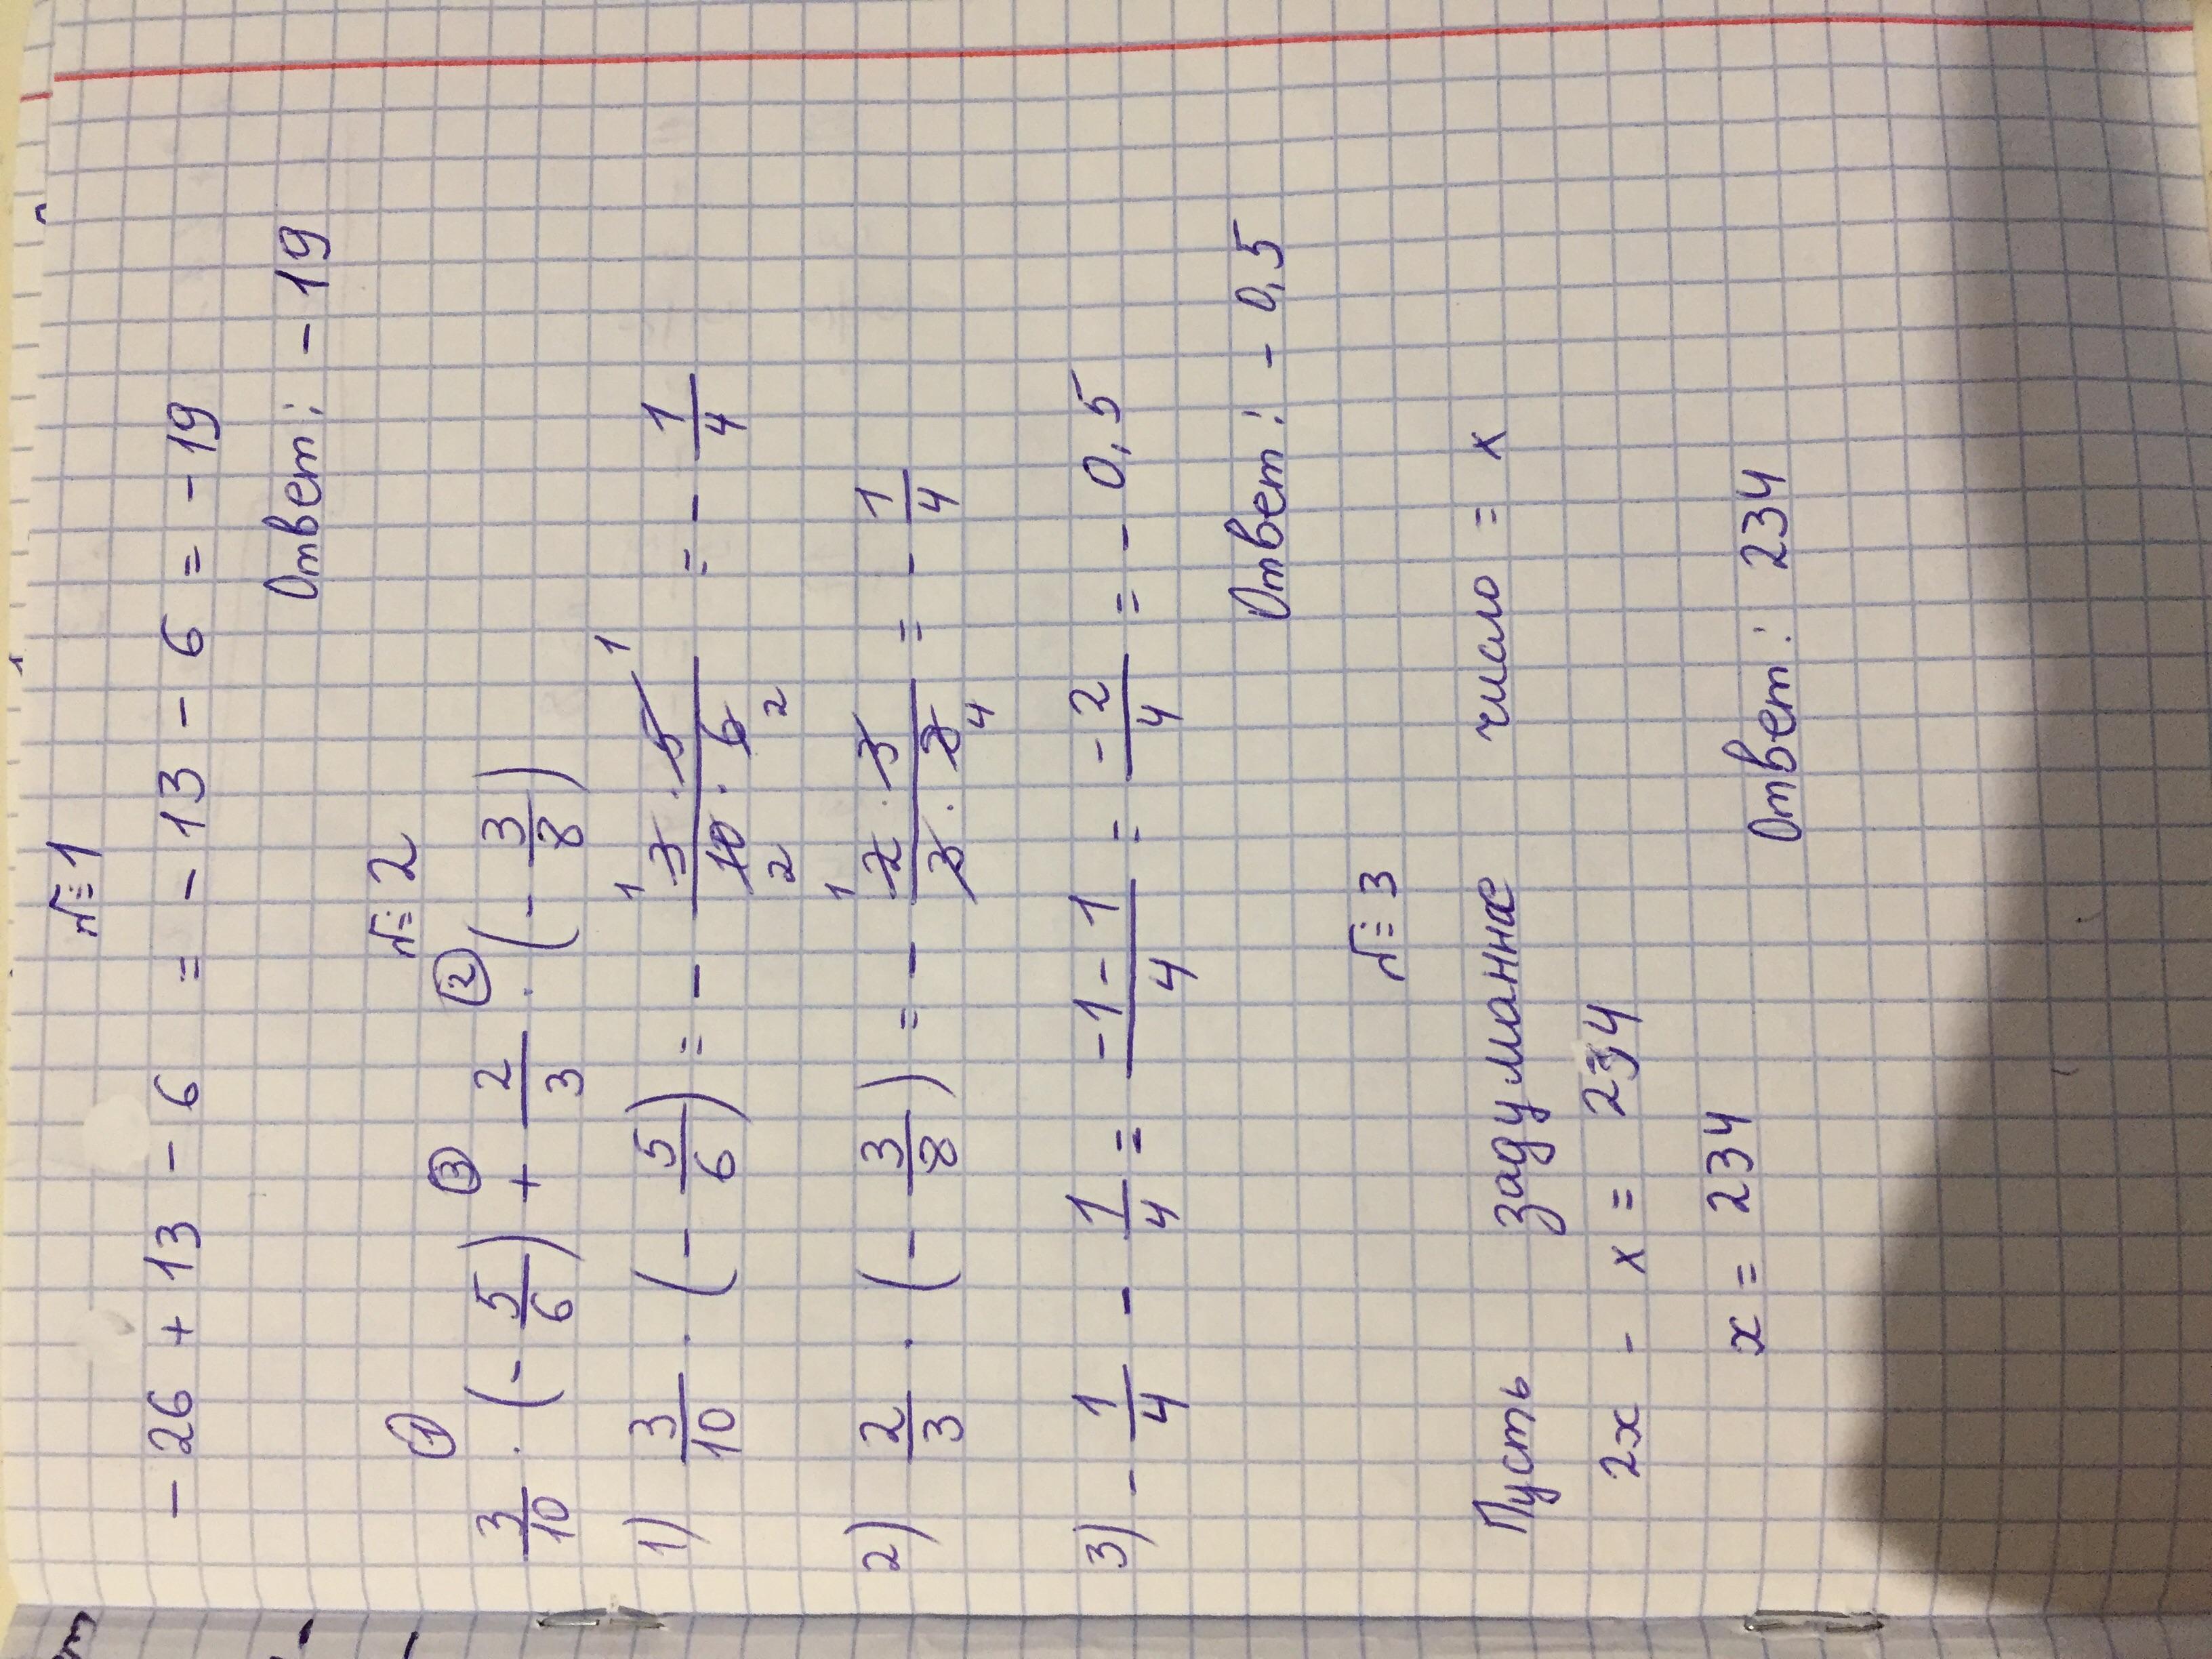 № 1
- 26 + 13 - 6 = - 13 - 6 = - 19
Ответ: - 19
№ 2
① ③ ②
3/10 · (- 5/6) + 2/3 · (- 3/8)
1) 3/10 · (- 5/6) = - 3 · 5 / 10 · 6 = - 1/4
1 1
2 2
2) 2/3 · (- 3/8) = - 2 · 3 / 3 · 8 = - 1/4
1
4
3) - 1/4 - 1/4 = -1-1/4 = -2/4 = - 0,5
Ответ: - 0,5
№ 3
Пусть задуманное число = x
2x - x = 234
x = 234
Ответ: 234